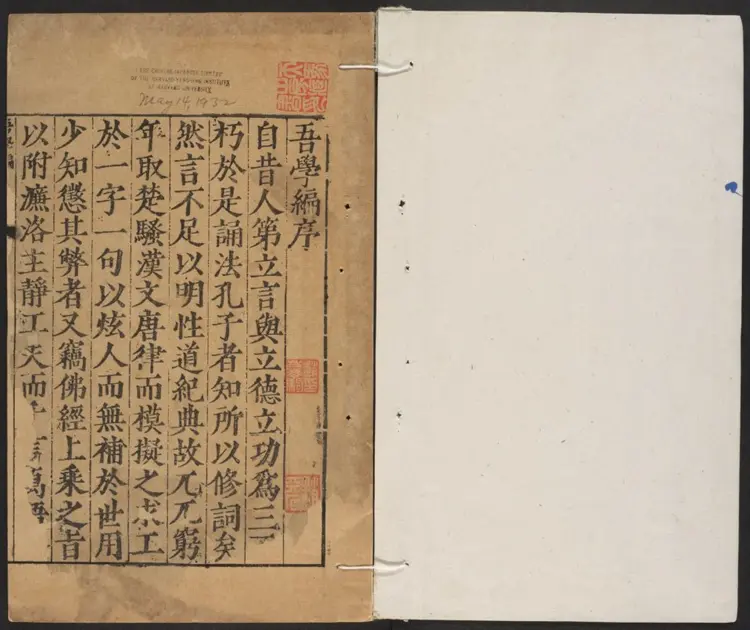 May 14, 1932
吾學編序
自昔人第立言與立德立功爲三
朽於是誦法孔子者知所以修詞矣
然言不足以明性道紀典故兀兀窮
年取楚騷漢文唐律而模擬之求工
於一字一句以炫人而無補於世用
少知懲其弊者又竊佛經上乘之旨
以附濂洛主靜工夫而